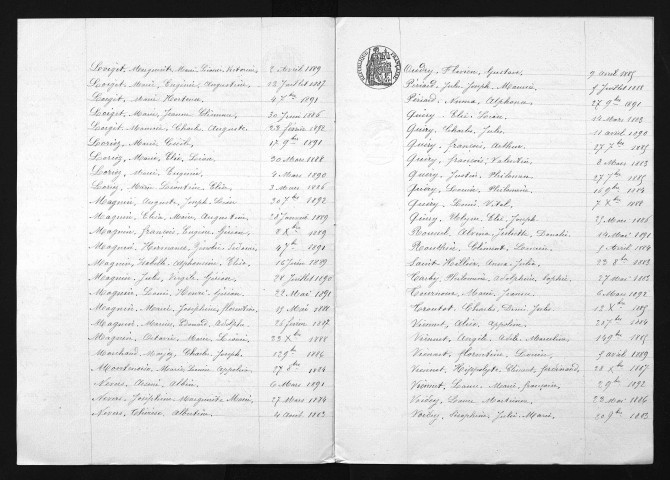 Lorget, Marguerite Marie Louise Victorine 2 Avril 1889
Lorget Marie, Eugénie, Augustine 12 Juillet 1887
Lorget Marie Hortense 4 Xbre 1891
Lorget, Marie, Jeanne 30 Juin 1886
Lorget Maurice, Charles Auguste 22 février 1892
Loriey, Marie Cécile 17 9bre 1891
Loriey, Marie, Elie, Léon 20 Mars 1888
Loriey, Marie Eugénie 4 Mars 1890
Loriey, Marie Léontine Elia 2 Mars 1886
Magnin, Auguste, Joseph, Léon 30 7bre 1892
Magnin, Elia, Marie, Augustine 28 Janvier 1889
Magnin, françois, Eugène, Gédéon 8 Xbre 1889
Magnin, Hermance 4 7bre 1890
Magnin, Isabelle Alphonsine, Elia 16 février 1889
Magnin, Jules, Virgile, Gédéon 28 Juillet 1890
Magnin, Louis, Henri, Gédéon 22 Mai 1891
Magnin, Marie, Joséphine, florentine 19 Mai 1888
Magnin Marius, Edouard, Adolphe 26 février 1887
Magnin, Octavie, Marie, Léonie 22 Xbre 1888
Marchand, Charles, Joseph 12 9bre 1886
Marie, Louise, Appoline 27 8bre 1884
Nevers, Albin 6 Mars 1891
Nevers, Joséphine, Marguerite, Marie 27 Mars 1886
Nevers, Albertine 4 Avril 1883
RÉPUBLIQUE FRANÇAISE
Oudry, Florian, Gustave 9 avril 1885
Périard, Jules, Joseph, Maurice 5 Juillet 1888
Périard, Numa, Alphonse 27 9bre 1891
Quéry Elie, Léon 14 Mars 1883
Quéry, Charles, Jules 11 avril 1890
Quéry, françois, Arthur 27 7bre 1885
Quéry, françois, Valentin 8 Mars 1883
Quéry, Justin, Philémon 27 7bre 1885
Quéry, Louise, Philomène 16 9bre 1884
Quéry, Louis, Vital 7 Xbre 1888
Quéry, Ulysse, Elie, Joseph 23 Mars 1886
14 Mai 1891
Clément, 1 Avril 1884
Saint-Hillier, Anna, Julia 22 8bre 1883
Philomène, Adolphine, Sophie 27 Mai 1883
Tournoux, Marie, Jeanne 6 Mars 1892
Troutet, Charles, Denis, Jules 12 Xbre 1885
Viennet, Alice, Appoline 20 7bre 1884
Viennet, Angèle, Adèle, Marceline 14 9bre 1885
Viennet, florentine, Louise 5 avril 1889
Viennet, Hippolyte, Clément, ferdinand 20 Xbre 1887
Viennet, Laure, Marie, françoise 2 9bre 1892
Voidey, Laure, 22 Mai 1886
Voidey, Joséphine, Julie, Marie 20 9bre 1883